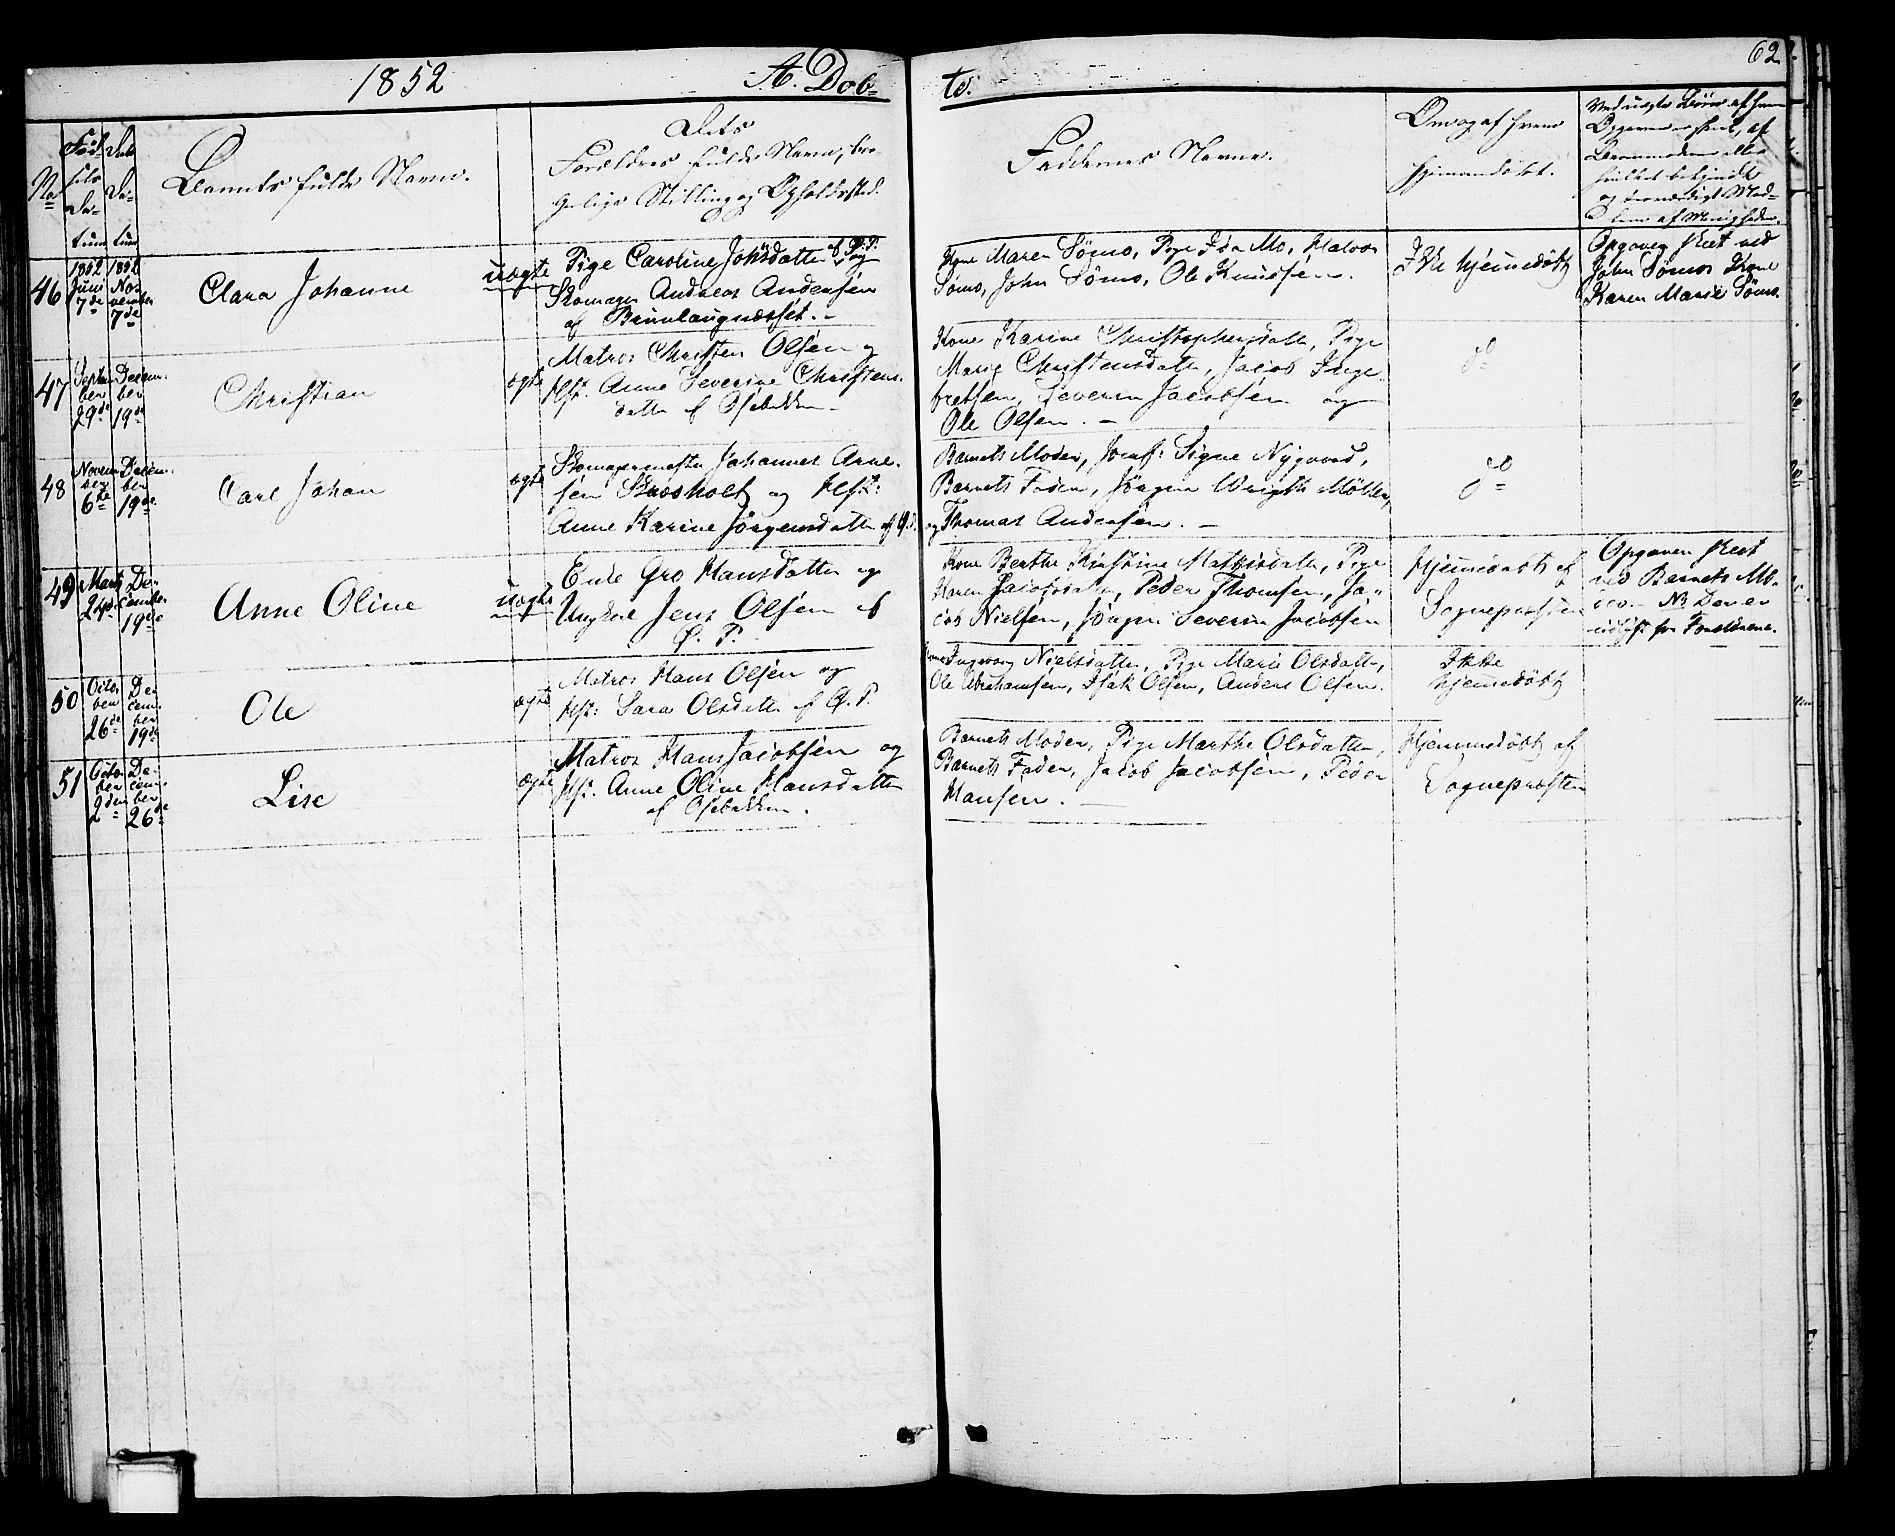 1852
A. Dob-
te.
62.
No
Fød-
sels
Da-
tum
Daabs
Da-
tum
Barnets fulde Navn.
Dets
Forældres fulde Navn, bor-
gerlige Stilling og Opholdssted.
Faddernes Navne.
Om og af hvem
hjemmedøbt.
Ved uægte Børn af hvem
Opgaven er skeet, af
Barnemoderen eller
og troværdigt Med-
lem af Menigheden.
46
1852
Juni
7de
1852
No-
vember
7de
Clara Johanne
uægte
Pige Caroline Johsdatter af P: P: og
Skomager Andreas Andersen
af Brunlaugnæsset. -
Kone Maren Sömo, Pige Ida Mo, Halvor
Sömo, John Sömo, Ole Knudsen.
Ikke hjemmedöbt
Opgaven skeet ved
John Sömos Kone
Karen Marie Sömo.
47
Septem
ber
29de
Decem-
ber
19de
Christian
ægte
Matros Christen Olsen og
Hst. Anne Severine Christens-
datter af Osebakken -
Kone Karine Christophersdatt, Pige
Marie Christensdatter, Jacob Inge-
bretsen, Severin Jacobsen og
Ole Olsen. -
do
48
Novem
ber
6te
Decem-
ber
19de
Carl Johan
ægte
Skomagermester Johannes Arne-
sen Skavsholt og Hst:
Anne Karine Jörgensdatter af P.
Barnets Moder, Jomf: Signe Nygaard,
Barnets Fader, Jörgen Wrigth Möller,
og Thomas Andersen. -
do
49
Marts
24de
De-
cember
19de
Anne Oline
uægte
Enke Gro Hansdatter og
Ungkarl Jens Olsen af
P. P.
Kone Berthe Kirstine Mathisdatter, Pige
Karen Jacobsdatter, Peder Thomsen, Ja-
cob Nielsen, Jörgen Severin Jacobsen
Hjemmedöbt af
Sognepræsten
Opgaven skeet
ved Barnets Mo-
der. - NB Den er
udlyst for Forældrene.
50
Octo-
ber
26de
De-
cem-
ber
19de
Ole
ægte
Matros Hans Olsen og
Hst: Sara Olsdatter af P. P.
Kone Ingeborg Nielsdatter, Pige Marie Olsdatter,
Ole Abrahamsen, Isak Olsen, Anders Olsen.
Ikke
hjemmedöbt
51
Octo-
ber
2den
De-
cem-
ber
26de
Lise
ægte
Matros Hans Jacobsen og
Hst. Anne Oline Hansdatter
af Osebakken.
Barnets Moder, Pige Marthe Olsdatter,
Barnets Fader, Jacob Jacobsen, Peder
Hansen. -
Hjemmedöbt af
Sognepræsten